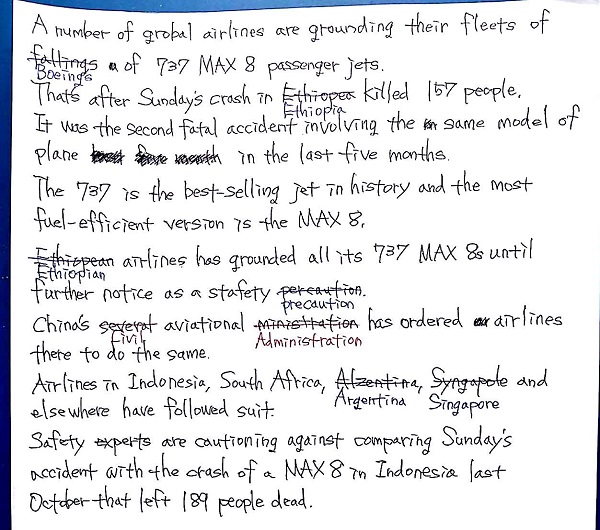 A number of grobal airlines are grounding their fleets of
fallings of 737 MAX 8 passenger jets.
Boeings
That's after Sunday's crash in Ethiopea killed 157 people.
Ethiopia
It was the second fatal accident involving the same model of
plane in the last five months.
The 737 is the best-selling jet in history and the most
fuel-efficient version is the MAX 8.
Ethiopean airlines has grounded all its 737 MAX 8s until
Ethiopian
further notice as a stafety percaution.
precaution
China's several aviational ministration has ordered airlines
Civil Administration
there to do the same.
Airlines in Indonesia, South Africa, Alzentina, Syngapole and
Argentina Singapore
elsewhere have followed suit.
Safety experts are cautioning against comparing Sunday's
accident with the crash of a MAX 8 in Indonesia last
October that left 189 people dead.